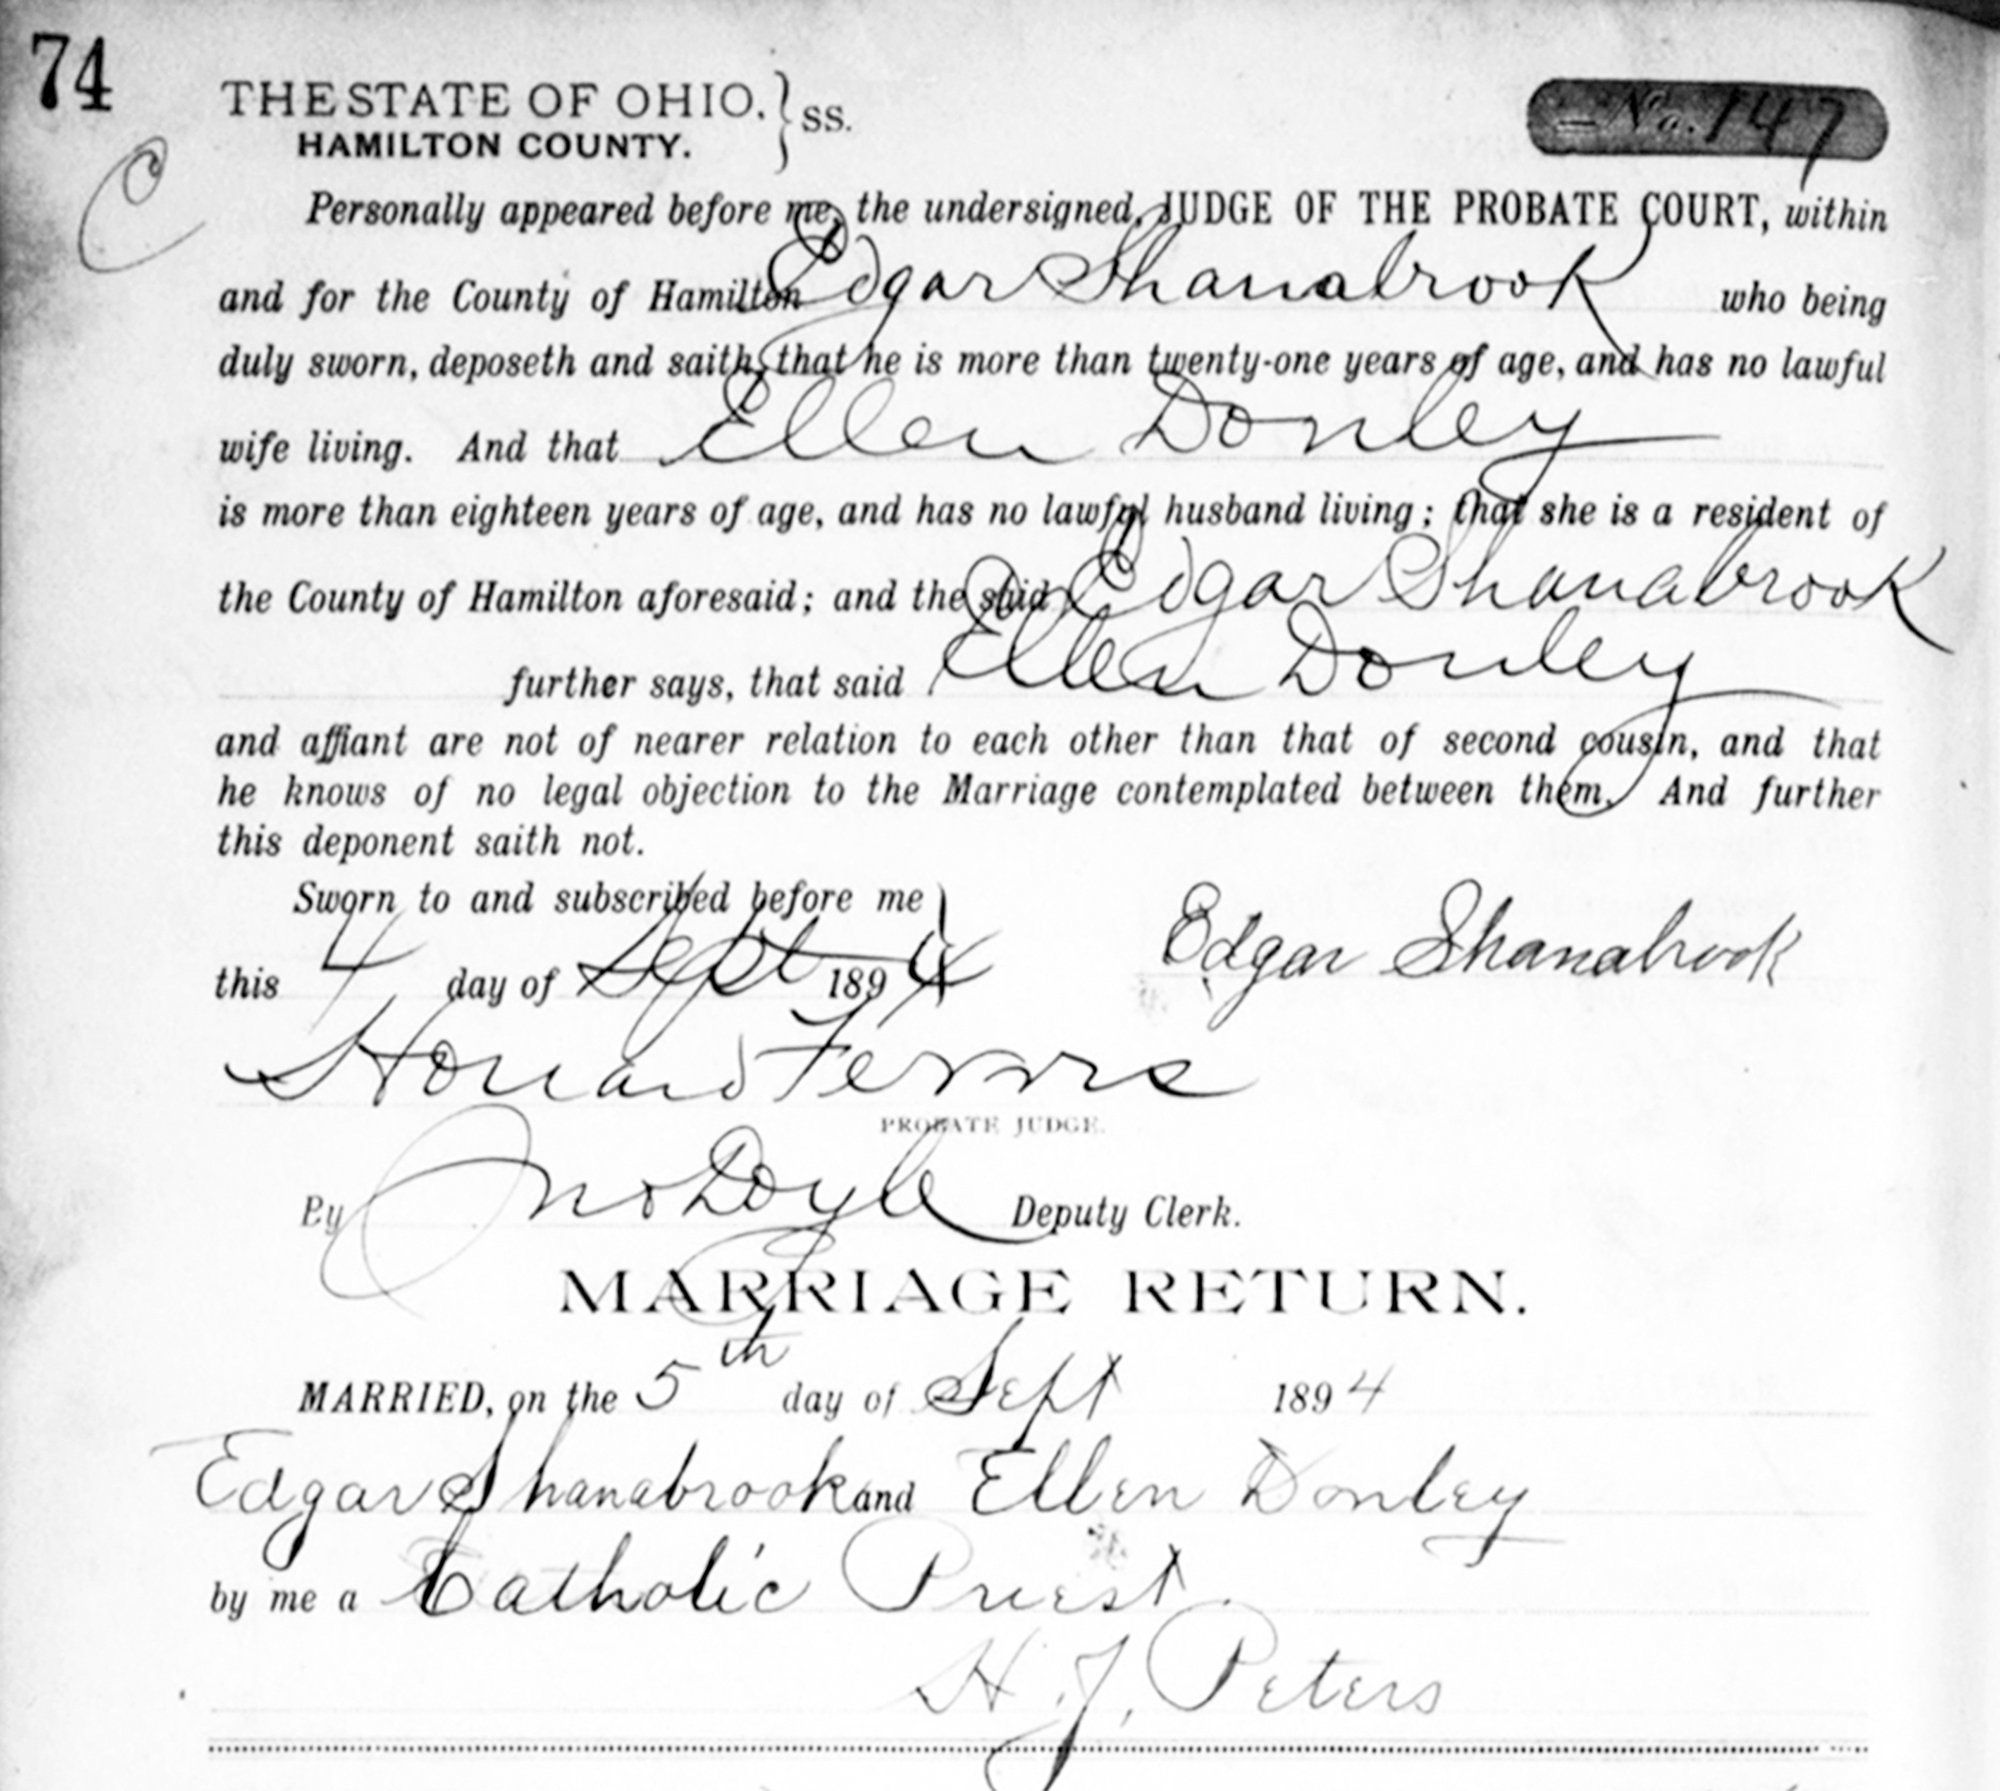 74
THE STATE OF OHIO, } SS.
HAMILTON COUNTY.
No. 147
C
Personally appeared before me, the undersigned, JUDGE OF THE PROBATE COURT, within
and for the County of Hamilton Edgar Shanabrook who being
duly sworn, deposeth and saith, that he is more than twenty-one years of age, and has no lawful
wife living. And that Ellen Donley
is more than eighteen years of age, and has no lawful husband living; that she is a resident of
the County of Hamilton aforesaid; and the said Edgar Shanabrook
further says, that said Ellen Donley
and affiant are not of nearer relation to each other than that of second cousin, and that
he knows of no legal objection to the Marriage contemplated between them. And further
this deponent saith not.
Sworn to and subscribed before me }
this 4 day of Sept 1894 Edgar Shanabrook
Howard Ferris
PROBATE JUDGE.
By Jno Doyle Deputy Clerk.
MARRIAGE RETURN.
MARRIED, on the 5th day of Sept 1894
Edgar Shanabrook and Ellen Donley
by me a Catholic Priest.
H. J. Peters